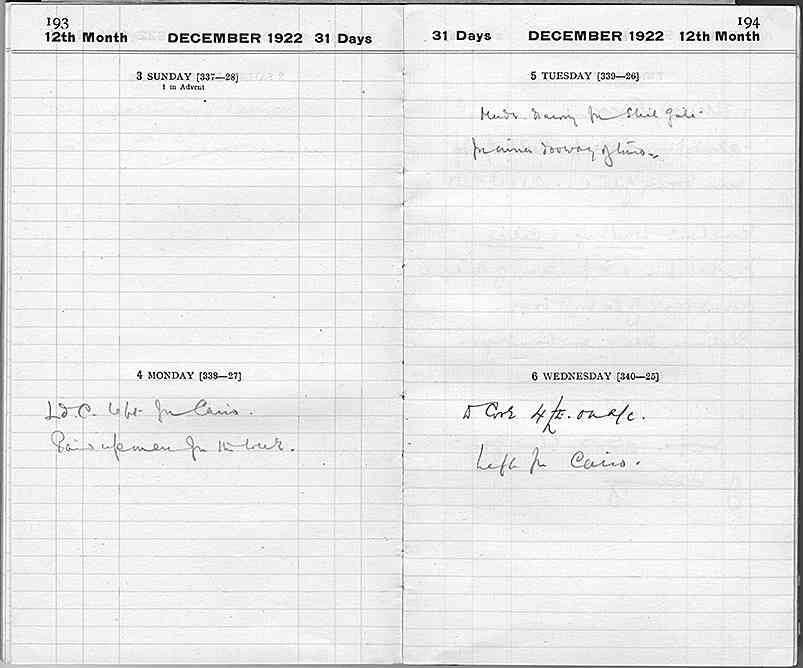 193
12th Month DECEMBER 1922 31 Days
3 SUNDAY [337—28]
1 in Advent
4 MONDAY [338—27]
Ld. C. left for Cairo.
Paid up men for the week.
194
31 Days DECEMBER 1922 12th Month
5 TUESDAY [339—26]
Made drawing for steel gate
for inner doorway of tomb.
6 WEDNESDAY [340—25]
Cook 4 on a/c.
Left for Cairo.